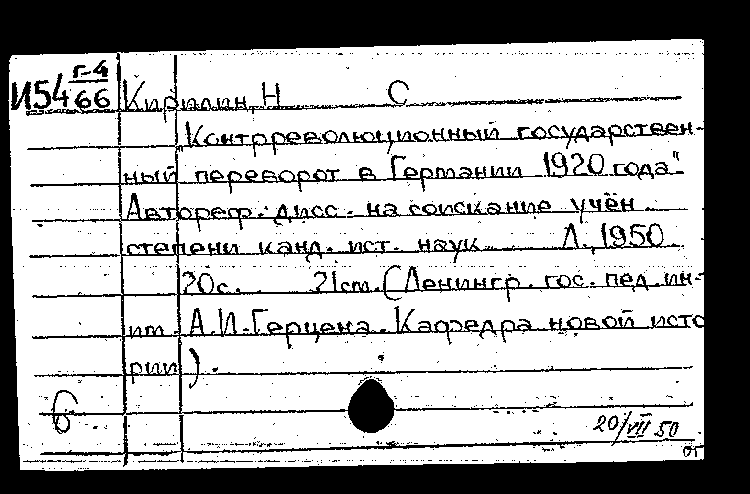 Г-4
И54 66 Кирилин, Н С
"Контрреволюционный государствен-
ный переворот в Германии 1920 года".
Автореф. дисс. на соискание учён.
степени канд. ист. наук Л., 1950
20с. 21см. (Ленингр. гос. пед. ин-
им. А.И.Герцена. Кафедра новой исто
рии).
б
20/VII 50